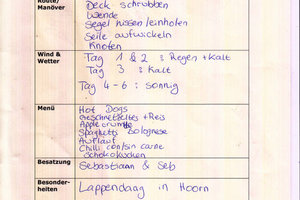 Route/
Manöver
Deck schrubben
Wende
Segel hissen/einholen
Seile aufwickeln
Knoten
Wind &
Wetter
Tag 1 & 2 : Regen + Kalt
Tag 3 : Kalt
Tag 4 - 6 : sonnig
Menü
Hot Dogs
Geschnetzeltes + Reis
Apple crumble
Spaghetti bolognese
Auflauf
Chilli con/sin carne
Schokokuchen
Besatzung
Sebastiaan & Seb
Besonder-
heiten
Lappendaag in Hoorn